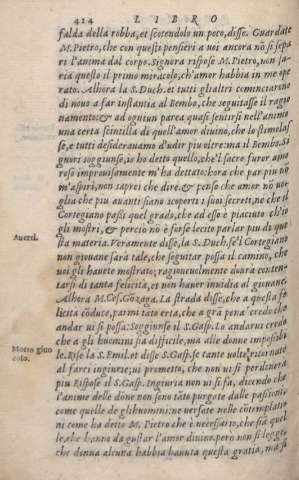 414 LIBRO
falda della robba, et scotendolo un poco, disse. Guardate
M. Pietro, che con questi pensieri a voi ancora nõ si sepa
ri l'anima dal corpo. Signora rispose M. Pietro, non sa-
ria questo il primo miracolo, ch'amor habbia in me ope
rato. Alhora la S. Duch. et tutti gli altri cominciarono
di novo a far instantia al Bembo, che seguitasse il ragio
namento: & ad ogniun parea quasi sentirsi nell'animo
una certa scintilla di quell'amor divino, che lo stimolas
se, e tutti desideravano d'udir piu oltre: ma il Bembo. Si
gnori soggiunse, io ho detto quello, che'l sacro furor amo
roso improvisamente m'ha dettato: hora che par piu nõ
m'aspiri, non saprei che dire. & penso che amor nõ vo-
glia che piu avanti siano scoperti i suoi secreti, ne che il
Cortegiano passi quel grado, che ad esso è piaciuto ch'io
gli mostri, & perciò nõ è forse lecito parlar piu di que
sta materia. Veramente disse, la S. Duch. se'l Cortegiano
Avert.
non giovane sarà tale, che seguitar possa il camino, che
voi gli havete mostrato; ragionevolmente dovrà conten-
tarsi di tanta felicità, et non haver invidia al giovane.
Alhora M. Ces. Gõzaga. La strada disse, che a questa fe
licità cõduce, parmi tãto erta, che a grã pena credo che
andar vi si possa. Soggiunse il S. Gasp. Lo andarvi credo
che a gli huomini sia difficile, ma alle donne impossibi
Motto gio
coso.
le. Rise la S. Emil. et disse S. Gasp. se tante volte ritornate
al farci ingiurie; vi prometto, che non vi si perdonerà
piu Rispose il S. Gasp. Ingiuria non vi si fa, dicendo che
l'anime delle dõne non sono tãto purgate dalle passioni,
come quelle de gli huomini: ne versate nelle contemplatio
ni come ha detto M. Pietro che è necessario, che siã quel
le, che hanno da gustar l'amor divino. pero non si legge,
che donna alcuna habbia havuta questa gratia, ma si